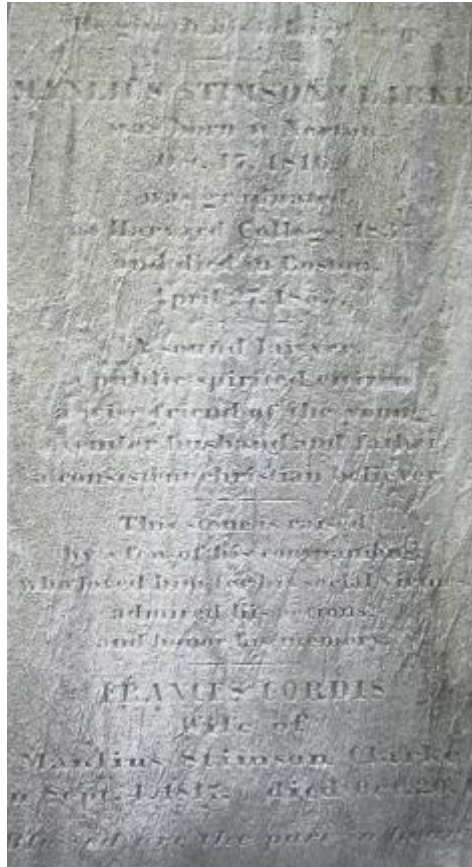 MANLIUS STIMSON CLARKE
was born in Norton,
Oct. 17, 1816,
was graduated
at Harvard College, 1837
and died in Boston,
April
A sound lawyer,
a public spirited citizen
a wise friend of the young,
a tender husband and father
a consistent christian believer
This stone is raised
by a few of his
who loved him for his social virtues
admired his
and honor his memory.
FRANCES LORDIS
Wife of
Manlius Stimson Clarke
Sept. 4, 1817. died Oct. 20,
Blessed are the pure